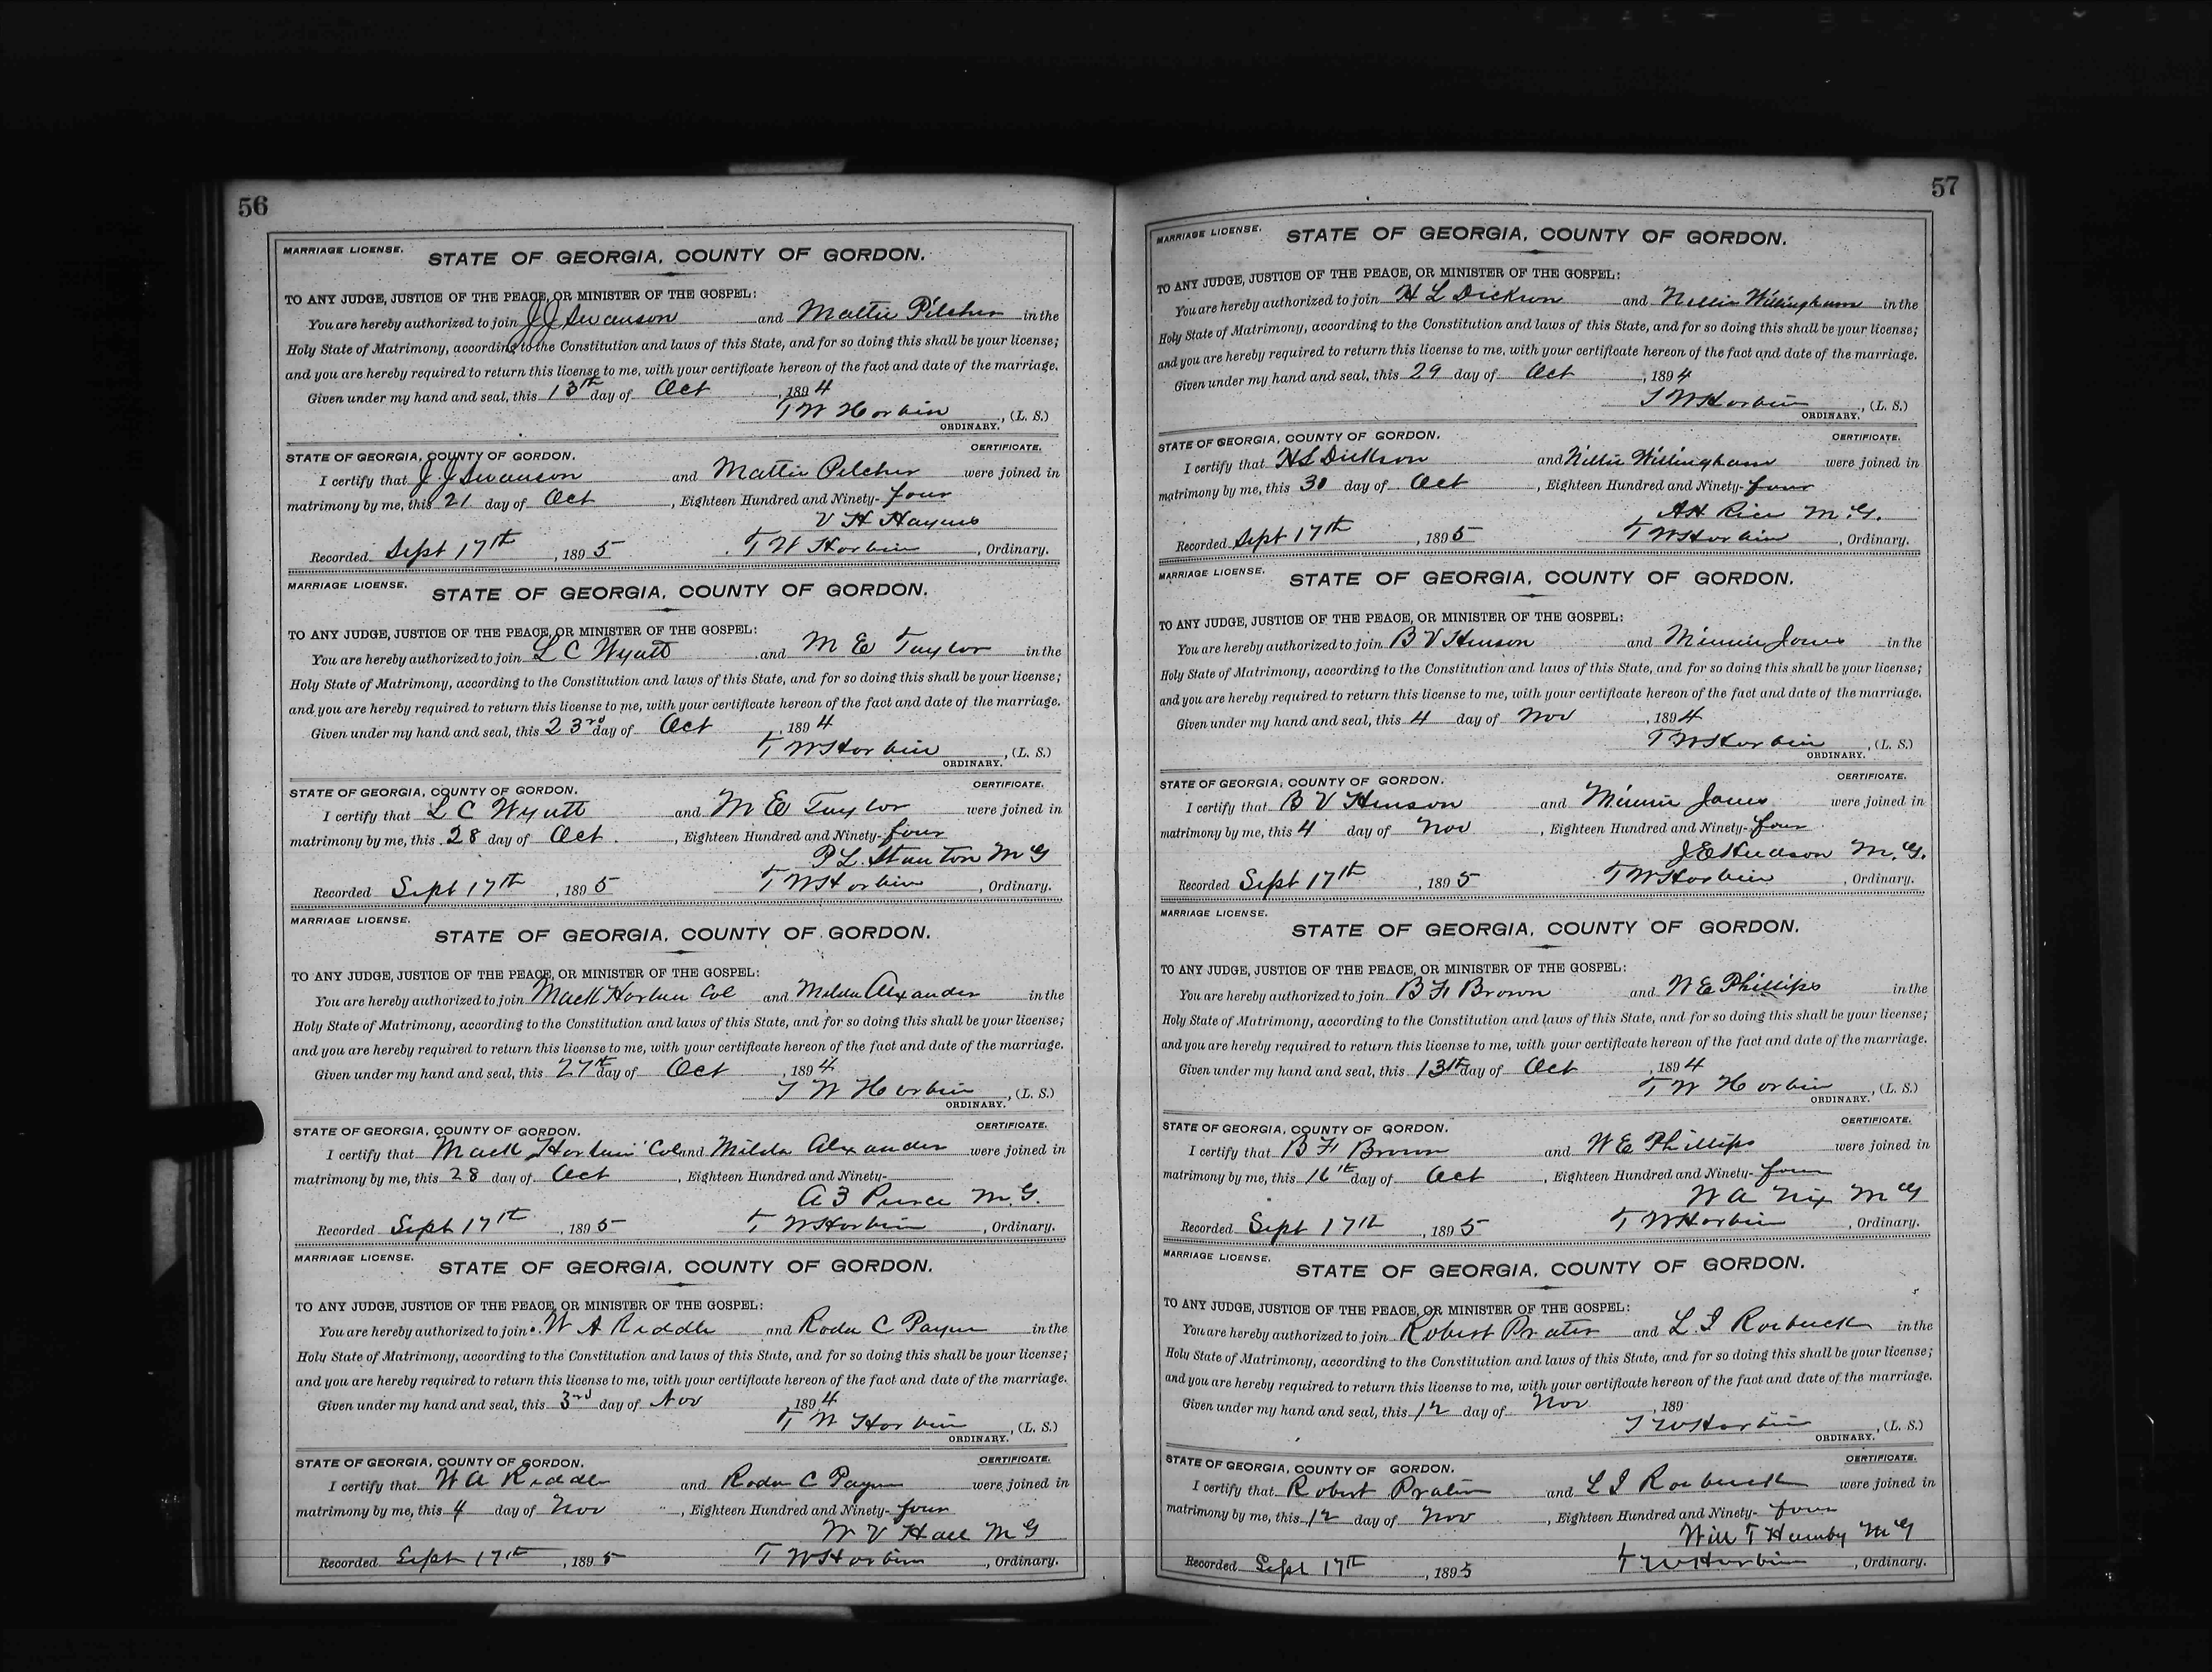 56
MARRIAGE LICENSE.
STATE OF GEORGIA, COUNTY OF GORDON.
TO ANY JUDGE, JUSTICE OF THE PEACE, OR MINISTER OF THE GOSPEL:
You are hereby authorized to join J J Swanson and Mattie Pilcher in the
Holy State of Matrimony, according to the Constitution and laws of this State, and for so doing this shall be your license;
and you are hereby required to return this license to me, with your certificate hereon of the fact and date of the marriage.
Given under my hand and seal, this 13th day of Oct, 1894
T W Harbin, (L. S.)
ORDINARY.
CERTIFICATE.
STATE OF GEORGIA, COUNTY OF GORDON.
I certify that J J Swanson and Mattie Pilcher were joined in
matrimony by me, this 21 day of Oct, Eighteen Hundred and Ninety-four
V H Haynes
Recorded Sept 17th, 1895 T W Harbin, Ordinary.
MARRIAGE LICENSE.
STATE OF GEORGIA, COUNTY OF GORDON.
TO ANY JUDGE, JUSTICE OF THE PEACE, OR MINISTER OF THE GOSPEL:
You are hereby authorized to join L C Wyatt and M E Taylor in the
Holy State of Matrimony, according to the Constitution and laws of this State, and for so doing this shall be your license;
and you are hereby required to return this license to me, with your certificate hereon of the fact and date of the marriage.
Given under my hand and seal, this 23rd day of Oct, 1894
T W Harbin, (L. S.)
ORDINARY.
CERTIFICATE.
STATE OF GEORGIA, COUNTY OF GORDON.
I certify that L C Wyatt and M E Taylor were joined in
matrimony by me, this 28 day of Oct., Eighteen Hundred and Ninety-four
P L. Stanton M G
Recorded Sept 17th, 1895 T W Harbin, Ordinary.
MARRIAGE LICENSE.
STATE OF GEORGIA, COUNTY OF GORDON.
TO ANY JUDGE, JUSTICE OF THE PEACE, OR MINISTER OF THE GOSPEL:
You are hereby authorized to join Mack Harbin Col and Milda Alexander in the
Holy State of Matrimony, according to the Constitution and laws of this State, and for so doing this shall be your license;
and you are hereby required to return this license to me, with your certificate hereon of the fact and date of the marriage.
Given under my hand and seal, this 27th day of Oct, 1894
T W Harbin, (L. S.)
ORDINARY.
CERTIFICATE.
STATE OF GEORGIA, COUNTY OF GORDON.
I certify that Mack Harbin Col and Milda Alexander were joined in
matrimony by me, this 28 day of Oct, Eighteen Hundred and Ninety-
A B Pierce M. G.
Recorded Sept 17th, 1895 T W Harbin, Ordinary.
MARRIAGE LICENSE.
STATE OF GEORGIA, COUNTY OF GORDON.
TO ANY JUDGE, JUSTICE OF THE PEACE, OR MINISTER OF THE GOSPEL:
You are hereby authorized to join W A Riddle and Roda C Payne in the
Holy State of Matrimony, according to the Constitution and laws of this State, and for so doing this shall be your license;
and you are hereby required to return this license to me, with your certificate hereon of the fact and date of the marriage.
Given under my hand and seal, this 3rd day of Nov, 1894
T W Harbin, (L. S.)
ORDINARY.
CERTIFICATE.
STATE OF GEORGIA, COUNTY OF GORDON.
I certify that W A Riddle and Roda C Payne were joined in
matrimony by me, this 4 day of Nov, Eighteen Hundred and Ninety-four
W V Hall M G
Recorded Sept 17th, 1895 T W Harbin, Ordinary.
57
MARRIAGE LICENSE.
STATE OF GEORGIA, COUNTY OF GORDON.
TO ANY JUDGE, JUSTICE OF THE PEACE, OR MINISTER OF THE GOSPEL:
You are hereby authorized to join H L Dickson and Nellie Willingham in the
Holy State of Matrimony, according to the Constitution and laws of this State, and for so doing this shall be your license;
and you are hereby required to return this license to me, with your certificate hereon of the fact and date of the marriage.
Given under my hand and seal, this 29 day of Oct, 1894
T W Harbin, (L. S.)
ORDINARY.
CERTIFICATE.
STATE OF GEORGIA, COUNTY OF GORDON.
I certify that H L Dickson and Nellie Willingham were joined in
matrimony by me, this 30 day of Oct, Eighteen Hundred and Ninety-four
A H Rice M. G.
Recorded Sept 17th, 1895 T W Harbin, Ordinary.
MARRIAGE LICENSE.
STATE OF GEORGIA, COUNTY OF GORDON.
TO ANY JUDGE, JUSTICE OF THE PEACE, OR MINISTER OF THE GOSPEL:
You are hereby authorized to join B V Henson and Minnie Jones in the
Holy State of Matrimony, according to the Constitution and laws of this State, and for so doing this shall be your license;
and you are hereby required to return this license to me, with your certificate hereon of the fact and date of the marriage.
Given under my hand and seal, this 4 day of Nov, 1894
T W Harbin, (L. S.)
ORDINARY.
CERTIFICATE.
STATE OF GEORGIA, COUNTY OF GORDON.
I certify that B V Henson and Minnie Jones were joined in
matrimony by me, this 4 day of Nov, Eighteen Hundred and Ninety-four
J E Hudson M. G.
Recorded Sept 17th, 1895 T W Harbin, Ordinary.
MARRIAGE LICENSE.
STATE OF GEORGIA, COUNTY OF GORDON.
TO ANY JUDGE, JUSTICE OF THE PEACE, OR MINISTER OF THE GOSPEL:
You are hereby authorized to join B F Brown and W E Phillips in the
Holy State of Matrimony, according to the Constitution and laws of this State, and for so doing this shall be your license;
and you are hereby required to return this license to me, with your certificate hereon of the fact and date of the marriage.
Given under my hand and seal, this 13th day of Oct, 1894
T W Harbin, (L. S.)
ORDINARY.
CERTIFICATE.
STATE OF GEORGIA, COUNTY OF GORDON.
I certify that B F Brown and W E Phillips were joined in
matrimony by me, this 16th day of Oct, Eighteen Hundred and Ninety-four
W A Nix M G
Recorded Sept 17th, 1895 T W Harbin, Ordinary.
MARRIAGE LICENSE.
STATE OF GEORGIA, COUNTY OF GORDON.
TO ANY JUDGE, JUSTICE OF THE PEACE, OR MINISTER OF THE GOSPEL:
You are hereby authorized to join Robert Prater and L. I Roebuck in the
Holy State of Matrimony, according to the Constitution and laws of this State, and for so doing this shall be your license;
and you are hereby required to return this license to me, with your certificate hereon of the fact and date of the marriage.
Given under my hand and seal, this 12 day of Nov, 189
T W Harbin, (L. S.)
ORDINARY.
CERTIFICATE.
STATE OF GEORGIA, COUNTY OF GORDON.
I certify that Robert Prater and L I Roebuck were joined in
matrimony by me, this 12 day of Nov, Eighteen Hundred and Ninety-four
Will T Hamby M G
Recorded Sept 17th, 1895 T W Harbin, Ordinary.